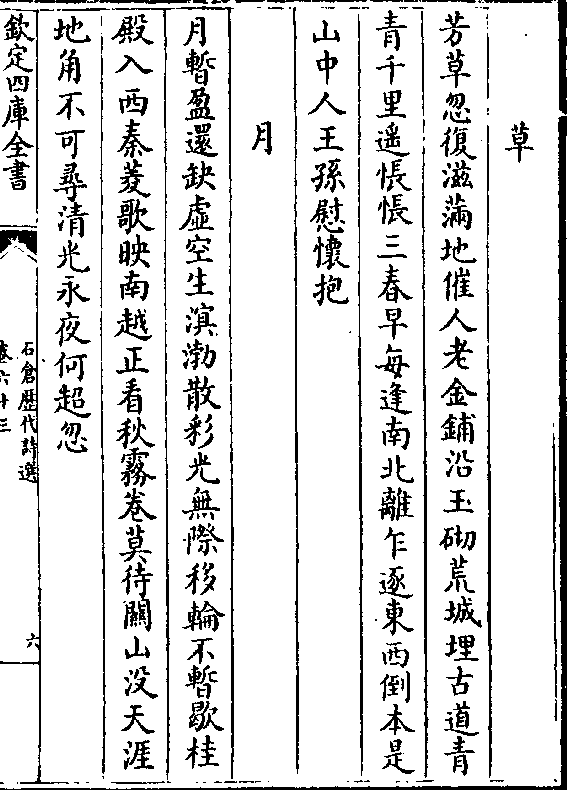 草
芳草忽復滋滿地催人老金鋪沿玉砌荒城埋古道青
青千里遥悵悵三春早每逢南北離乍逐東西倒本是
山中人王孫慰懷抱
月
月暫盈還缺虛空生溟渤散彩光無際移輪不暫歇桂
殿入西秦菱歌映南越正看秋霧卷莫待關山没天涯
地角不可尋清光永夜何超忽
欽定四庫全書
石倉歴代詩選
卷六十三
六